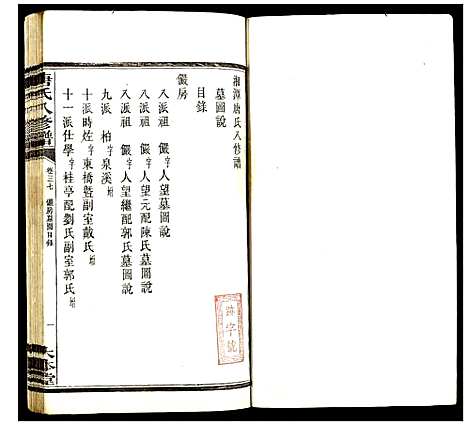 湘潭唐氏八修譜
墓圖說
目錄
儼房
八派祖 儼字人望墓圖說
八派祖 儼字人望元配陳氏墓圖說
八派祖 儼字人望繼配郭氏墓圖說
九派 柏字泉溪墳
十派時竤字東橋暨副室戴氏墳
十一派仕學字桂亭配劉氏副室郭氏墳
唐氏八修譜
卷三七 儼房墓圖目錄
一
大本堂
跡字號